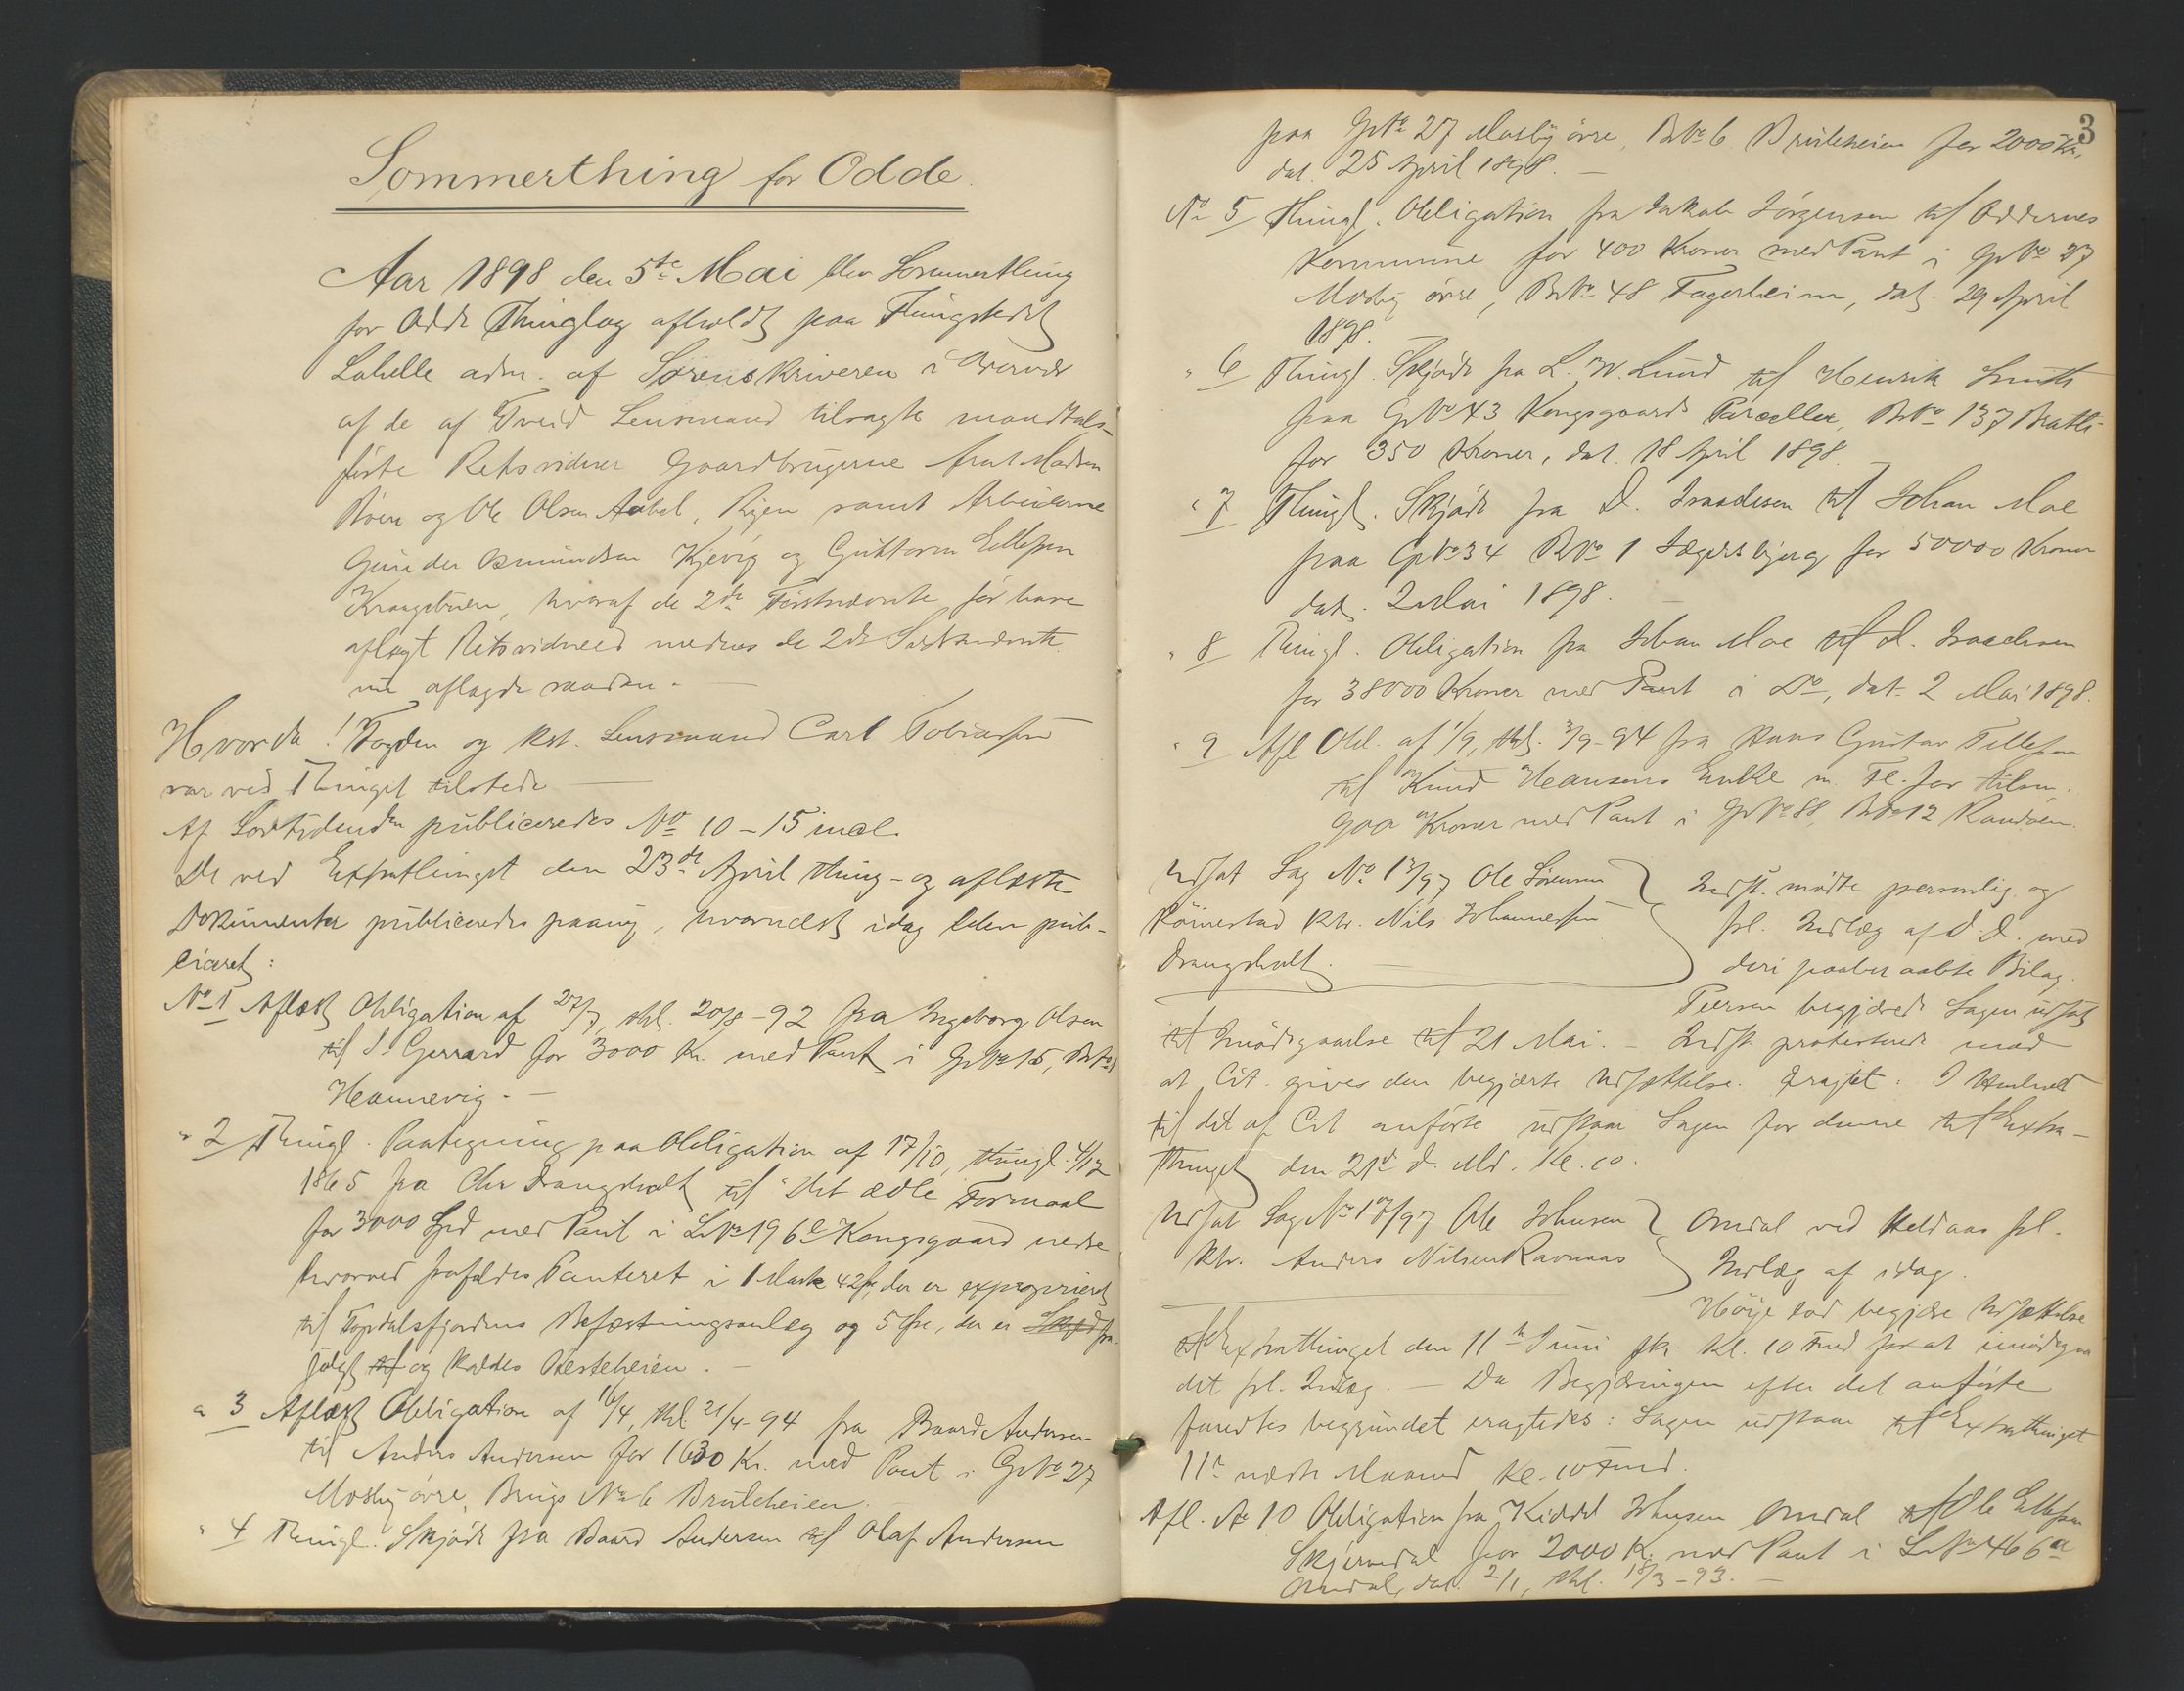 Sommerthing for Odde.
Aar 1898 den 5te Mai blev Sommerthing
for Odde Thinglag afholdt paa Thingstedet
Lahelle adm. af Sorenskriveren i Overvær
af de af Tveid Lensmand tilsagte mandtals-
førte Retsvidner Gaardbrugerne Madsen
og Ole Olsen Aabel, Ryen samt Arbeiderne
Gunder Osmundsen Kjevig og Guttorm Ellefsen
hvoraf de 2de Førstnævnte før have
aflagt Retsvidneed medens de 2de Sidstnævnte
nu aflagde saadan. —
Hvorda! Fogden og kst. Lensmand Carl Tobiassen
var ved Thinget tilstede —
Af Lovtidenden publiceredes No 10 - 15 incl.
De ved Extrathinget den 23de April thing- og aflæste
Dokumenter publiceredes paany, hvornæst idag blev pub-
liceret:
No 1 Aflæst Obligation af 27/7, thl. 20/8 - 92 fra Ingeborg Olsen
til S. Gerrard for 3000 Kr. med Pant i GrNo 15,
Hannevig. —
" 2 Thingl. Paategning paa Obligation af 17/10, thingl. 4/12
1865 fra Chr Drangsholt til "Det ædle Formaal
for 3000 Spd med Pant i LNo 196 e Kongsgaard nedre
hvorved frafaldes Panteret i 1 Mark 42 Øre, der er exproprieret
til Topdalsfjordens Befæstningsanlæg og 5 Øre, der er fra-
solgt og kaldes Hesteheien. —
" 3 Aflæst Obligation af 16/4, thl. 21/4 - 94 fra Baard Andersen
til Anders Andersen for 1630 Kr. med Pant i GrNo 27
Mosby øvre, Brugs No 6 Bruleheien. —
" 4 Thingl. Skjøde fra Baard Andersen til Olaf Andersen
3
paa GrNo 27 Mosby øvre, BrNo 6 Bruleheien for 2000 Kr,
dat. 25 April 1898. —
No 5 Thingl. Obligation fra Jakob Jørgensen til Oddernes
Kommune for 400 Kroner med Pant i GrNo 27
Mosby øvre, BrNo 48 Fagerheim, dat. 29 April
1898.
" 6 Thingl. Skjøde fra L. W. Lund til Henrik Smith
paa GrNo 43 Kongsgaards Parceller, BrNo 137 Bratli
for 350 Kroner, dat. 18 April 1898. —
" 7 Thingl. Skjøde fra D. Isaachsen til Johan Moe
paa GrNo 34 BrNo 1 Jægersbjerg for 50000 Kroner
dat. 2 Mai 1898. —
" 8 Thingl. Obligation fra Johan Moe til D. Isaachsen
for 38000 Kroner med Pant i Do, dat. 2 Mai 1898.
" 9 Afl Obl. af 1/9, thl. 3/9 - 94 fra Hans Gustav Tellefsen
til Knud Hansens Enke m. Fl. for tilsm.
900 Kroner med Pant i GrNo 88, BrNo 12 Randøen.
Udsat Sag No 13/97 Ole Sørensen
Rønnestad ktr. Nils Johannessen
Drangsholt. —
Indst. mødte personlig og
frl. Indlæg af D. D. med
deri paaberaabte Bilag.
begjærede Sagen udsat
til Imødegaaelse til 21 Mai. — Indst. protesterede mod
at Cit. gives den begjærte Udsættelse. Eragtet: I Henhold
til det af Cit anførte udstaar Sagen for denne til Extra-
thinget den 21de d. Md. Kl. 10.
Udsat Sag No 17/97 Ole Johnsen
ktr. Anders Nilsen Ravnaas
Omdal ved Heldaas frl.
Indlæg af idag.
Høye lod begjære Udsættelse
til Extrathinget den 11te Juni Kl. 10 Fmd for at imødegaa
det frl. Indlæg. — Da Begjæringen efter det anførte
fandtes begrundet eragtedes: Sagen udstaar til Extrathinget
11te næste Maaned Kl. 10 Fmd.
Afl. No 10 Obligation fra Kiddel Johnsen Omdal til Ole Ellefsen
for 2000 Kr. med Pant i LNo 466 a
Omdal, dat. 2/1, thl. 18/3 - 93. —